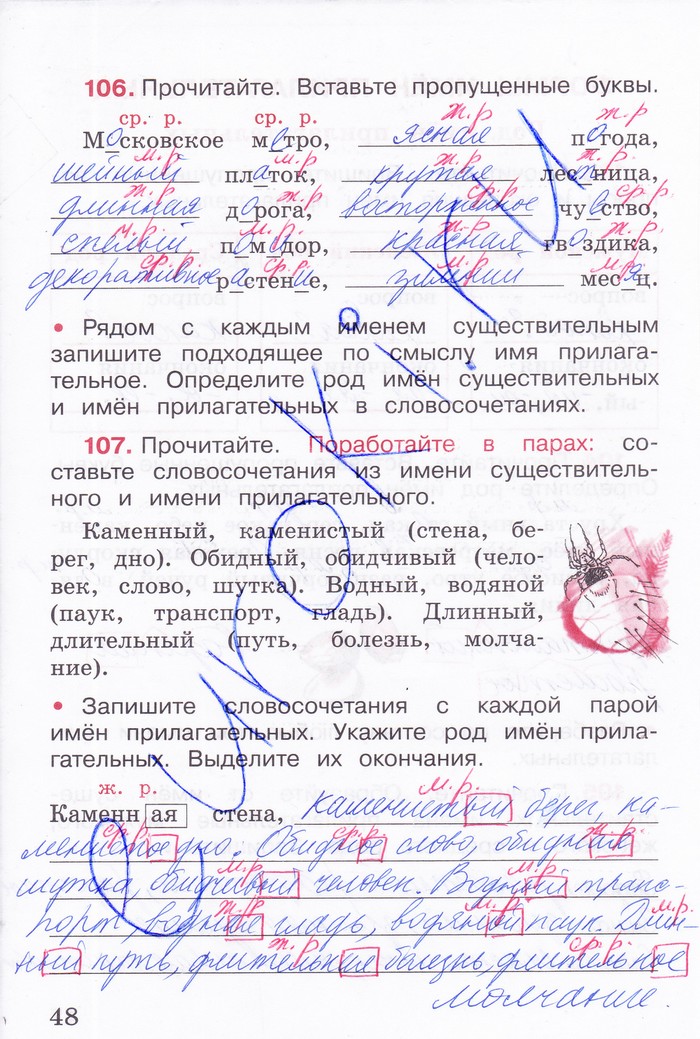 106. Прочитайте. Вставьте пропущенные буквы.
ср. р. ср. р. ж. р ж. р
Московское метро, ясная погода,
м. р м. р ж. р ж. р.
шейный платок, крутая лестница,
ж. р ж. р ср. р ср. р.
длинная дорога, восторженное чувство,
м. р м. р ж. р
спелый помидор, красная гвоздика,
ср. р. ср. р. м. р м. р
декоративное растение, зимний месяц.
• Рядом с каждым именем существительным
запишите подходящее по смыслу имя прилага-
тельное. Определите род имён существительных
и имён прилагательных в словосочетаниях.
107. Прочитайте. Поработайте в парах: со-
ставьте словосочетания из имени существитель-
ного и имени прилагательного.
Каменный, каменистый (стена, бе-
рег, дно). Обидный, обидчивый (чело-
век, слово, шутка). Водный, водяной
(паук, транспорт, гладь). Длинный,
длительный (путь, болезнь, молча-
ние).
• Запишите словосочетания с каждой парой
имён прилагательных. Укажите род имён прила-
гательных. Выделите их окончания.
ж. р. м. р.
Каменная стена, каменистый берег, ка-
ср. р. ср. р. ж. р
менистое дно. Обидное слово, обидная
м. р м. р
шутка, обидчивый человек. Водный транс-
ж. р м. р. м. р.
порт, водная гладь, водяной паук. Длин-
ж. р ср. р.
ный путь, длительная болезнь, длительное
молчание.
48